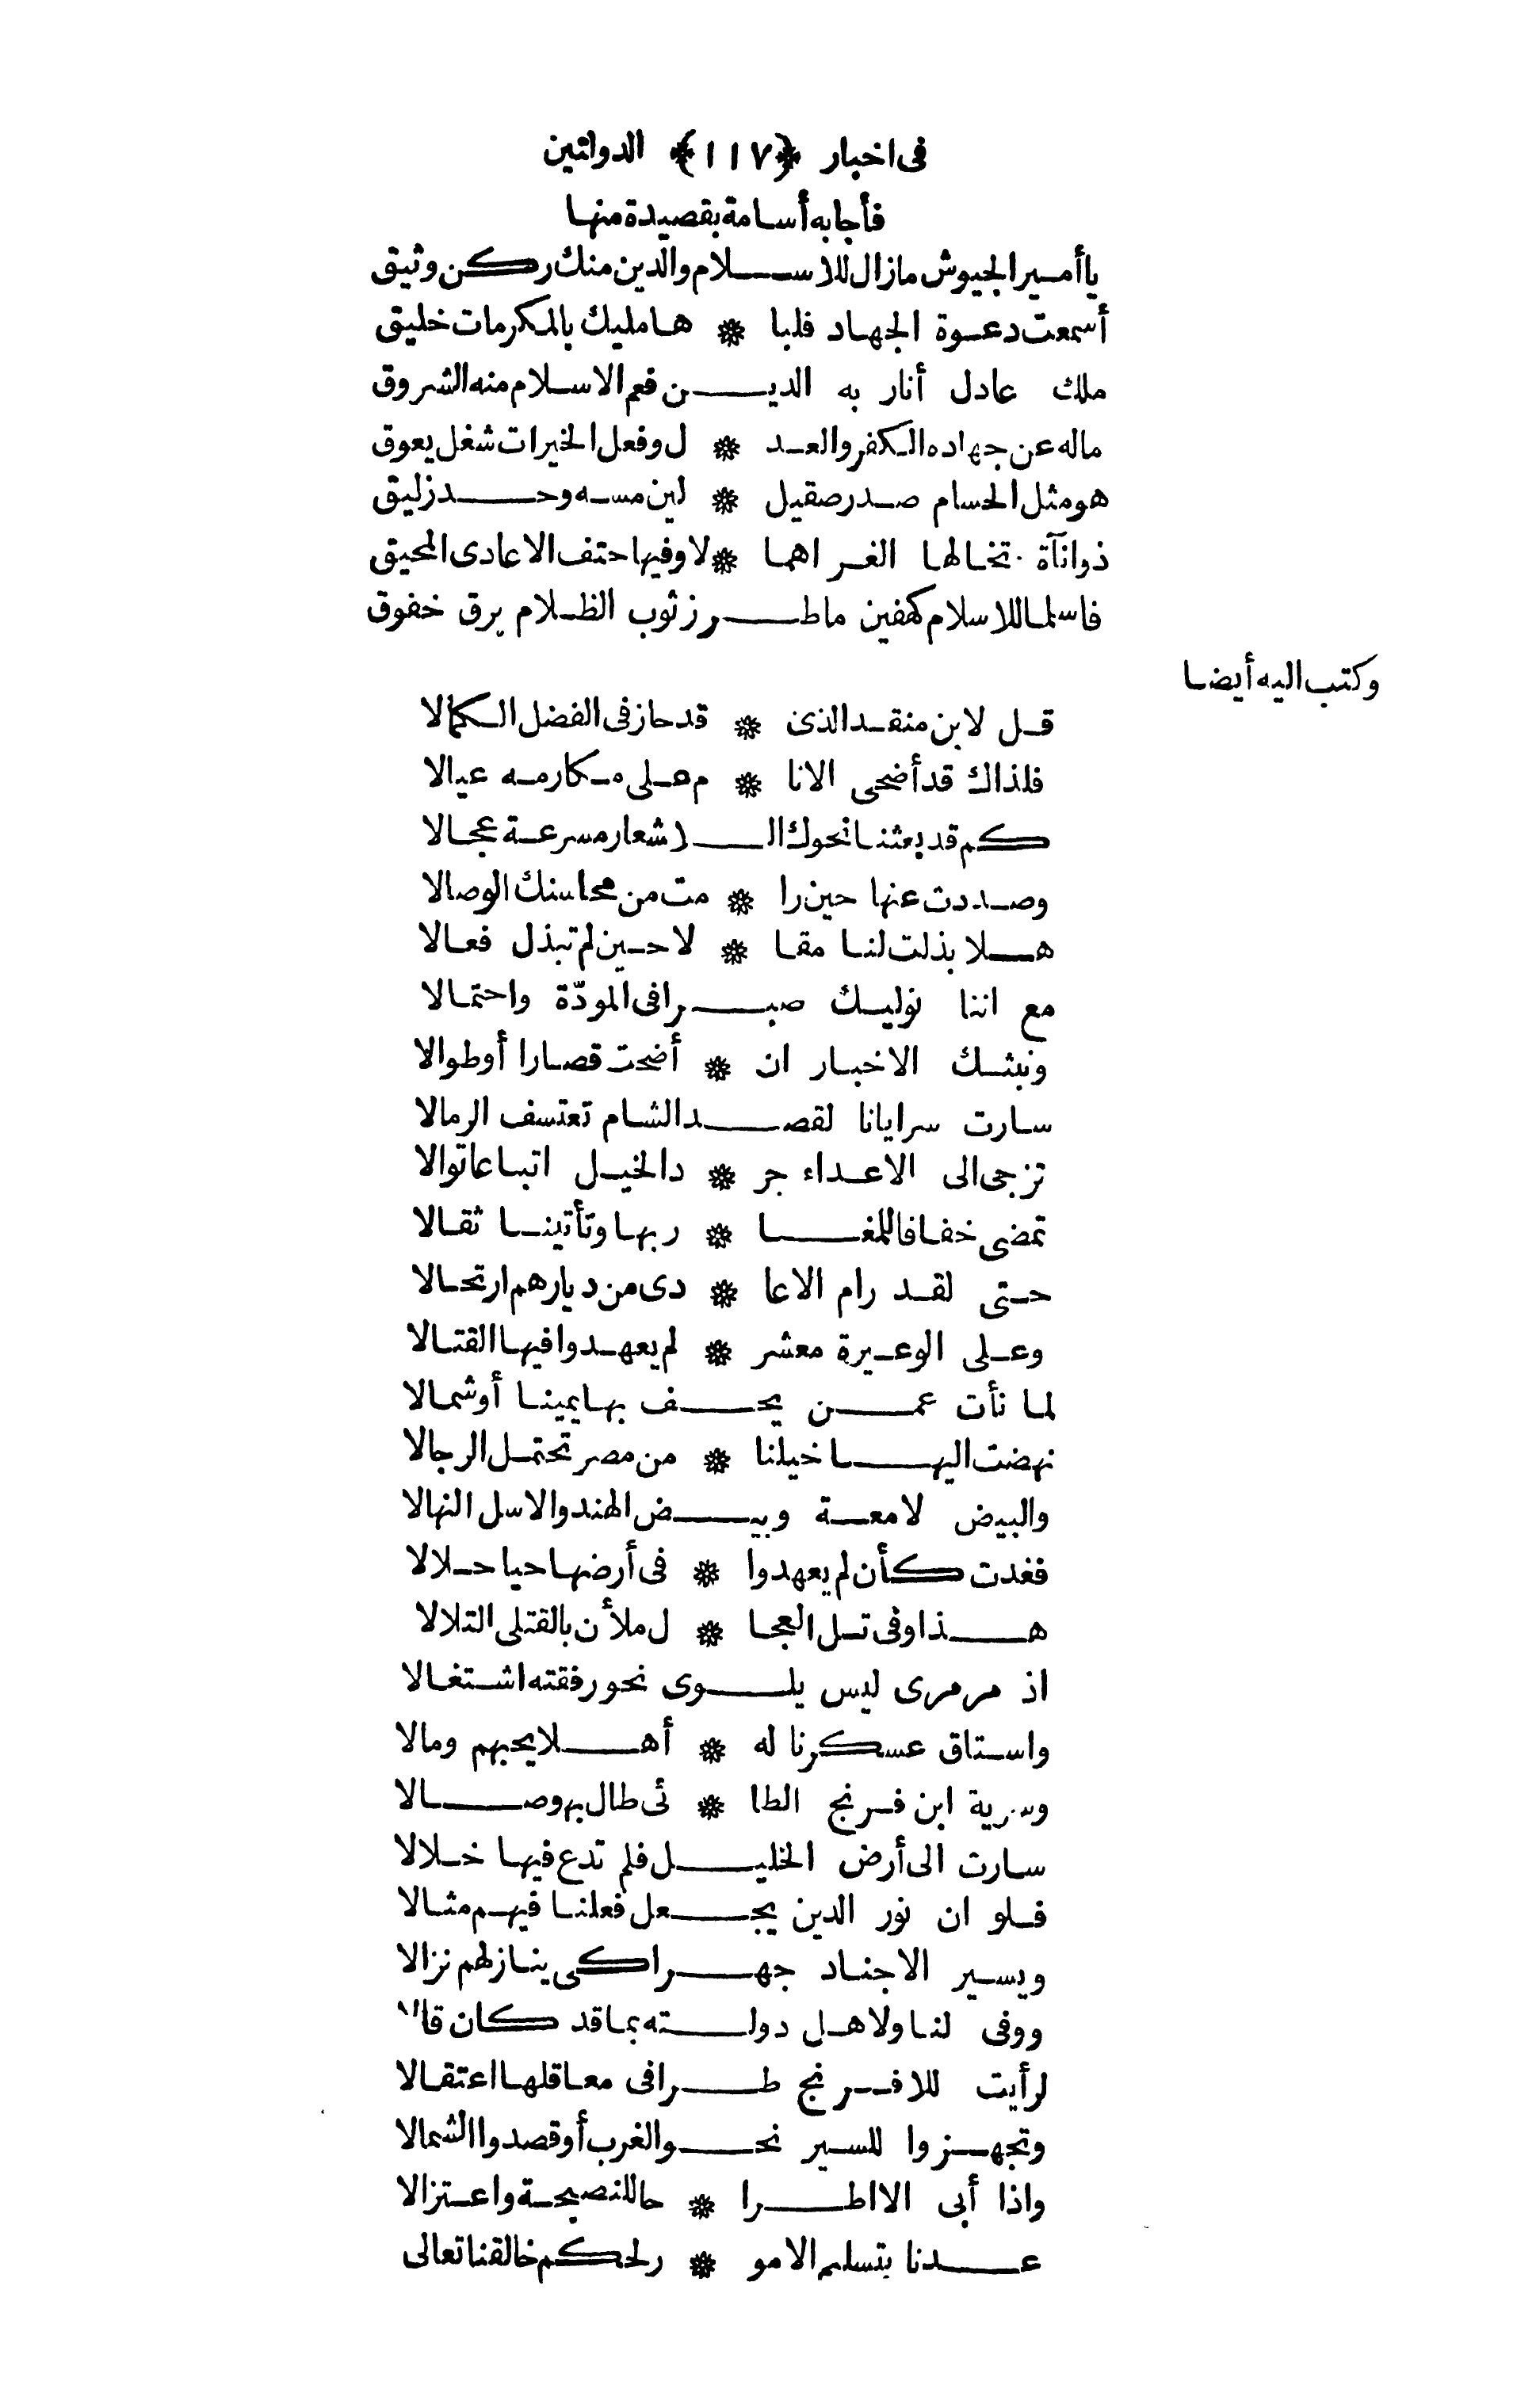 فى اخبار ﴿١١٧﴾ الدولتين
فأجابه أسامة بقصيدة منها
يا أمير الجيوش مازال للاسلام والدين منك ركن وثيق
أسمعت دعوة الجهاد فلبا * ها مليك بالمكرمات خليق
ملك عادل أنار به الدين فعم الاسلام منه الشروق
ماله عن جهاده الكفر والعد * ل وفعل الخيرات شغل يعوق
هو مثل الحسام صدر صقيل * لين مسه وحد زليق
ذو انآة تخالها الغر اهما * لا وفيها حتف الاعادى المحيق
فاسلما للاسلام كهفين ما طرز ثوب الظلام برق خفوق
وكتب اليه أيضا
قل لابن منقد الذى * قد حاز فى الفضل الكمالا
فلذاك قد أضحى الانا * م على مكارمه عيالا
كم قد بعثنا نحوك الاشعار مسرعة عجالا
وصددت عنها حين را * مت من محاسنك الوصالا
هلا بذلت لنا مقا * لا حين لم تبذل فعالا
مع اننا نوليك صبرا فى المودّة واحتمالا
ونبثك الاخبار ان * أضحت قصارا أوطوالا
سارت سرايانا لقصد الشام تعتسف الرمالا
تزجى الى الاعداء جر * د الخيل اتباعا توالا
تمضى خفافا للمغا * ر بها وتأتينا ثقالا
حتى لقد رام الاعا * دى من ديارهم ارتحالا
وعلى الوعيرة معشر * لم يعهدوا فيها القتالا
لما نأت عمن يحف بها يمينا أوشمالا
نهضت اليها خيلنا * من مصر تحتمل الرجالا
والبيض لامعة وبيض الهند والاسل النهالا
فغدت كأن لم يعهدوا * فى أرضها حيا حلالا
هذا وفى تل العجا * ل ملأن بالقتلى التلالا
اذ مر مرى ليس يلوى نحو رفقته اشتغالا
واستاق عسكرنا له * أهلا يحبهم ومالا
وسرية ابن فرنج الطا * ئى طال بهوصالا
سارت الى أرض الخليل فلم تدع فيها خلالا
فلو ان نور الدين يجعل فعلنا فيهم مثالا
ويسير الاجناد جهرا كى ينازلهم نزالا
ووفى لنا ولاهل دولته بما قد كان قالا
لرأيت للافرنج طرا فى معاقلها اعتقالا
وتجهزوا للسير نحو الغرب أوقصدوا الشمالا
واذا أبى الا اطرا * حا للنصيحة واعتزالا
عدنا بتسليم الامو * ر لحكم خالقنا تعالى